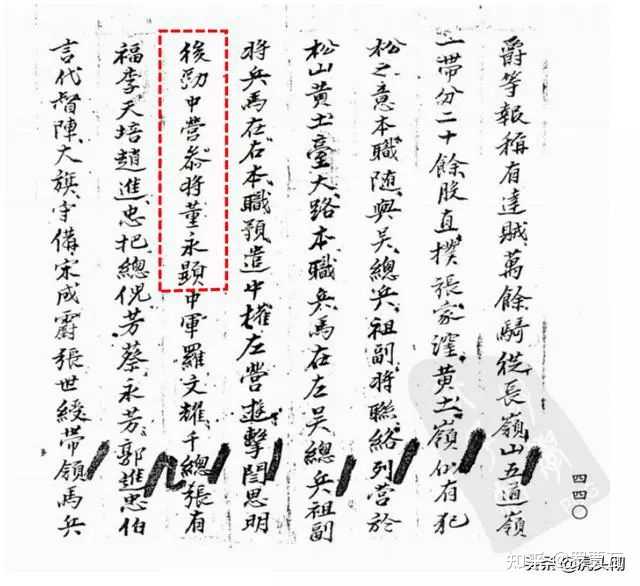 爵等報稱有達賊萬餘騎從長嶺山五道嶺
一帶分二十餘股直撲張家窪黃土嶺似有犯
松之意本職随與吴總兵祖副將聯絡列營於
松山黃土臺大路本職兵馬在左吴總兵祖副
將兵馬在右本職預遣中權左營遊擊閻思明
後勁中營叅將董永顕中軍羅文耀千總張有
福李天培趙進忠把總倪芳蔡永芳郭進忠伯
言代督陣大旗守備宋成爵張世綬帶領馬兵
四四〇
知乎
头条 @虎头砌